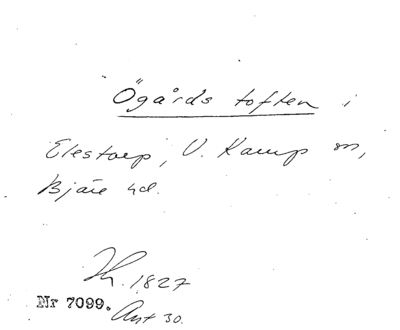 Ögårds toften i
Elestorp, V. Karup sn,
Bjäre hd.
Lh. 1827
Nr 7099. Ant 30.